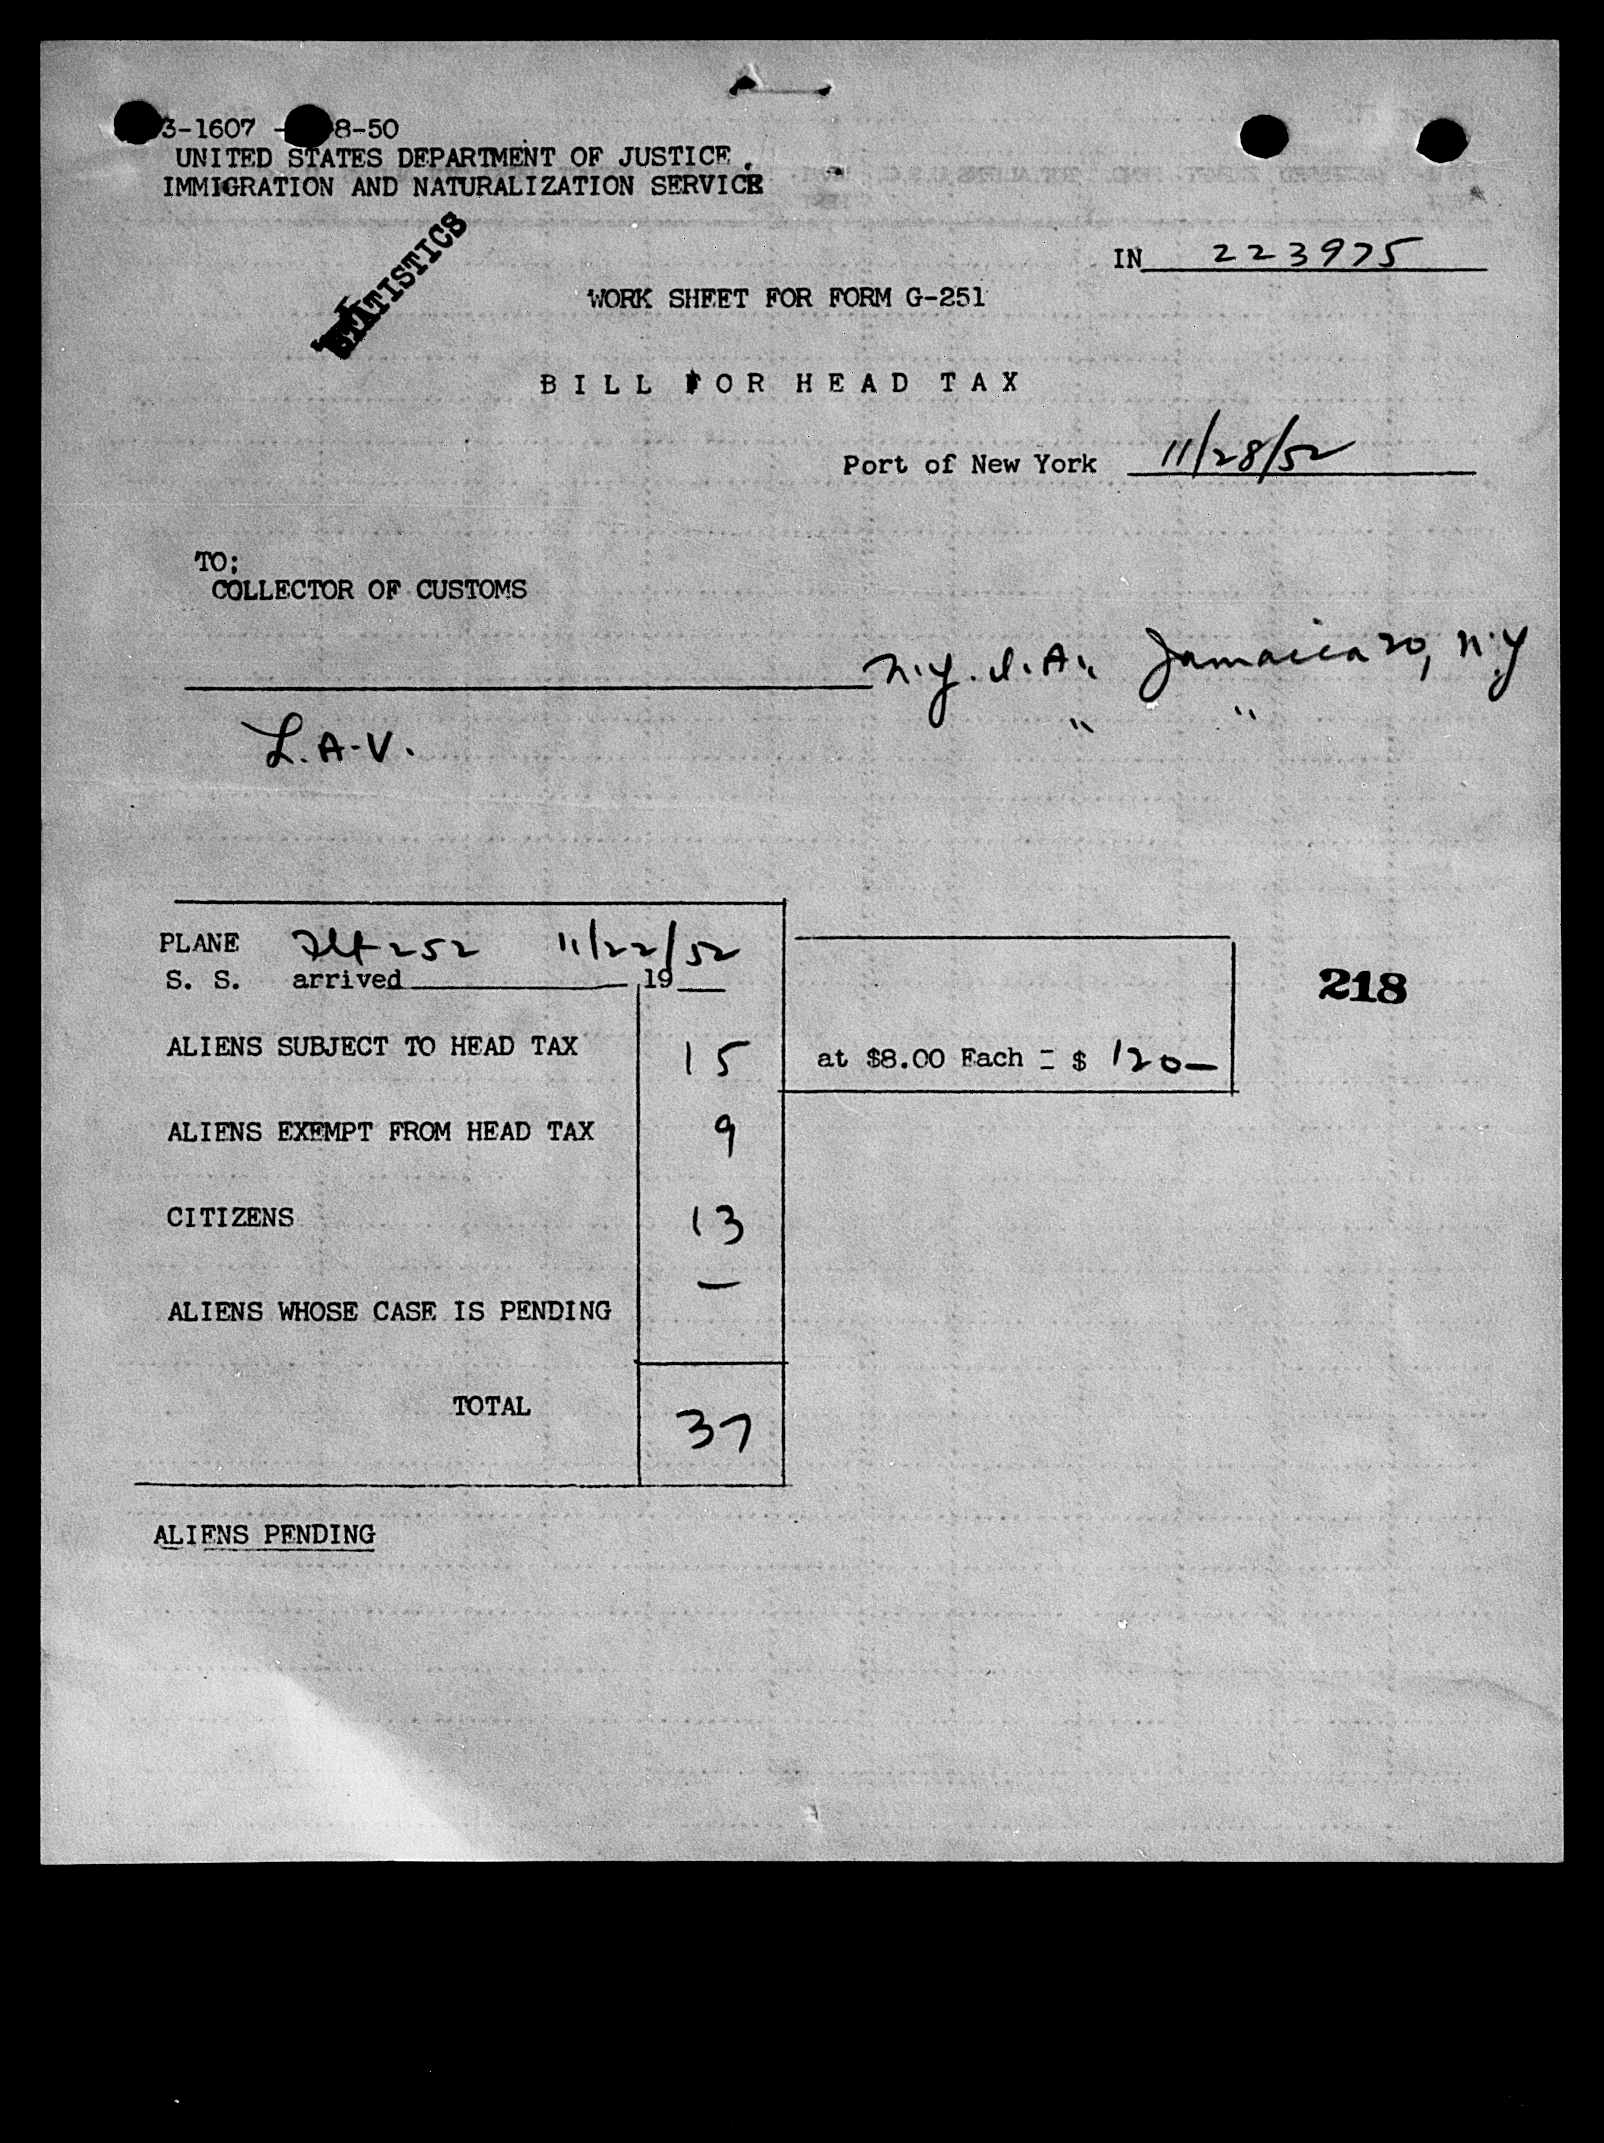 3-1607 - 8-50
UNITED STATES DEPARTMENT OF JUSTICE
IMMIGRATION AND NATURALIZATION SERVICE
STATISTICS
IN 223975
WORK SHEET FOR FORM G-251
BILL FOR HEAD TAX
Port of New York 11/28/52
TO:
COLLECTOR OF CUSTOMS
N.Y.I.A., Jamaica 20, N.Y
" "
L.A.V.
PLANE Flt 252 11/22/52
S. S. arrived 19
218
ALIENS SUBJECT TO HEAD TAX 15 at $8.00 Each = $ 120—
ALIENS EXEMPT FROM HEAD TAX 9
CITIZENS 13
ALIENS WHOSE CASE IS PENDING —
TOTAL 37
ALIENS PENDING